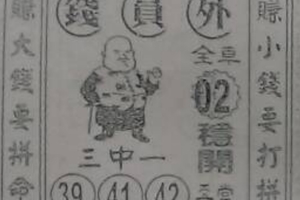 錢員外
賺小錢要打拼
賺大錢要拼命
全車
02
穩開
三中一
39 41 42